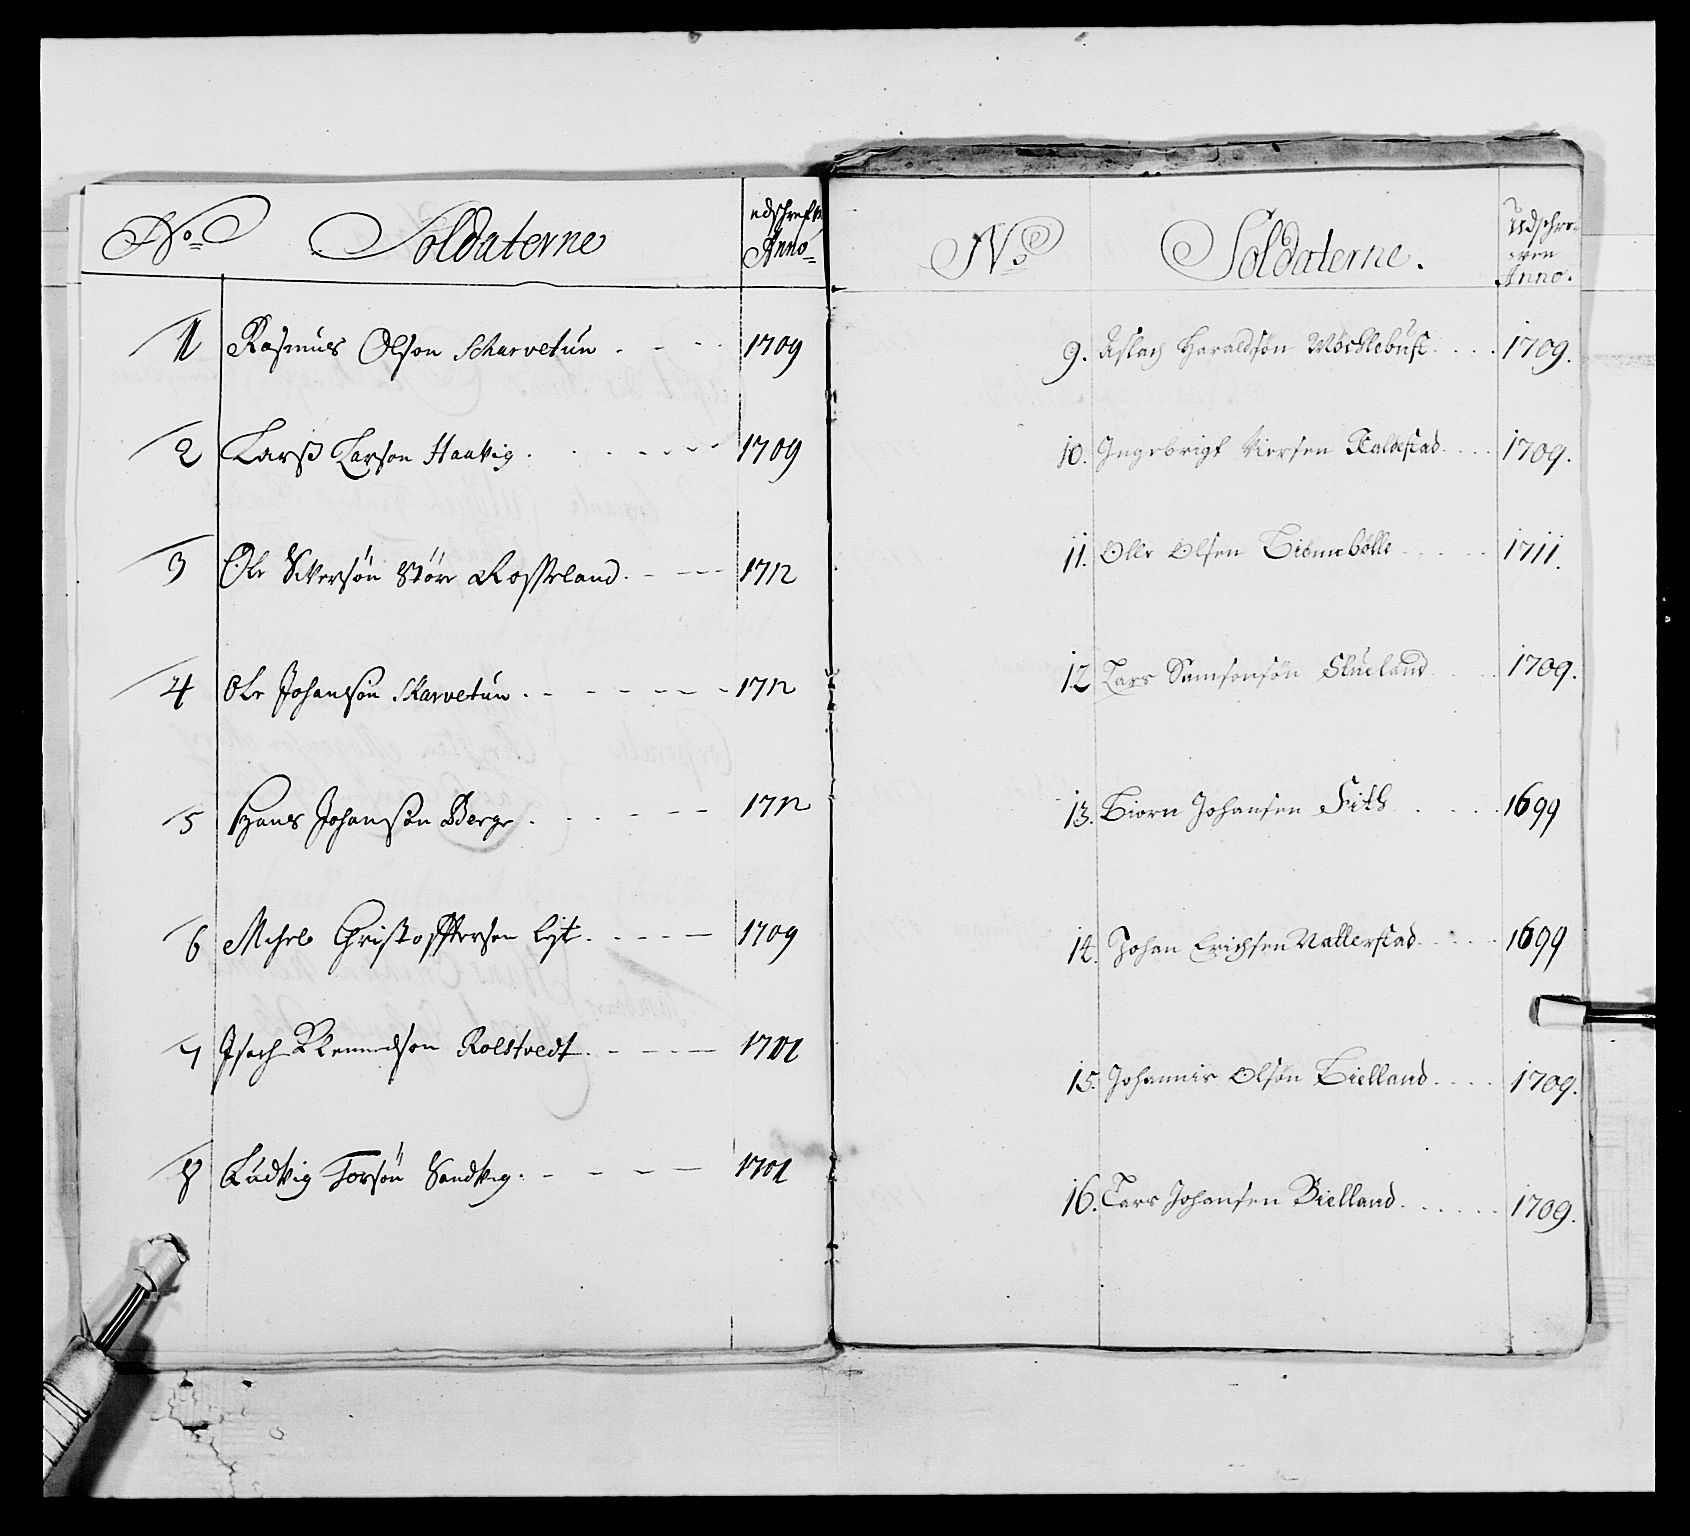 No Soldaterne udschrefv. Anno
1 Rasmus Olson Scharvetun 1709
2 Larss Larson Haavig 1709
3 Ole Siversön Störe Rosseland 1712
4 Ole Johanson Skarvetun 1712
5 Hans Johanson Berge 1712
6 Michel Christoffersen Eyt 1709
7 Isach Amundson Rolstvedt 1701
8 Ludvig Torsön Sandvig 1701
No Soldaterne. Udschre-
ven
Anno.
9. Aslach Haraldsön Möchlebust 1709.
10. Ingebrigt Siversen Kaldestad 1709.
11. Olle Olsen Biennebölle 1711.
12 Lars Samsonsön Skueland 1709.
13. Biorn Johansen Fith 1699
14. Johan Erichsen Nallerstad 1699
15. Johannis Olsön Bielland 1709.
16. Lars Johansen Bielland 1709.